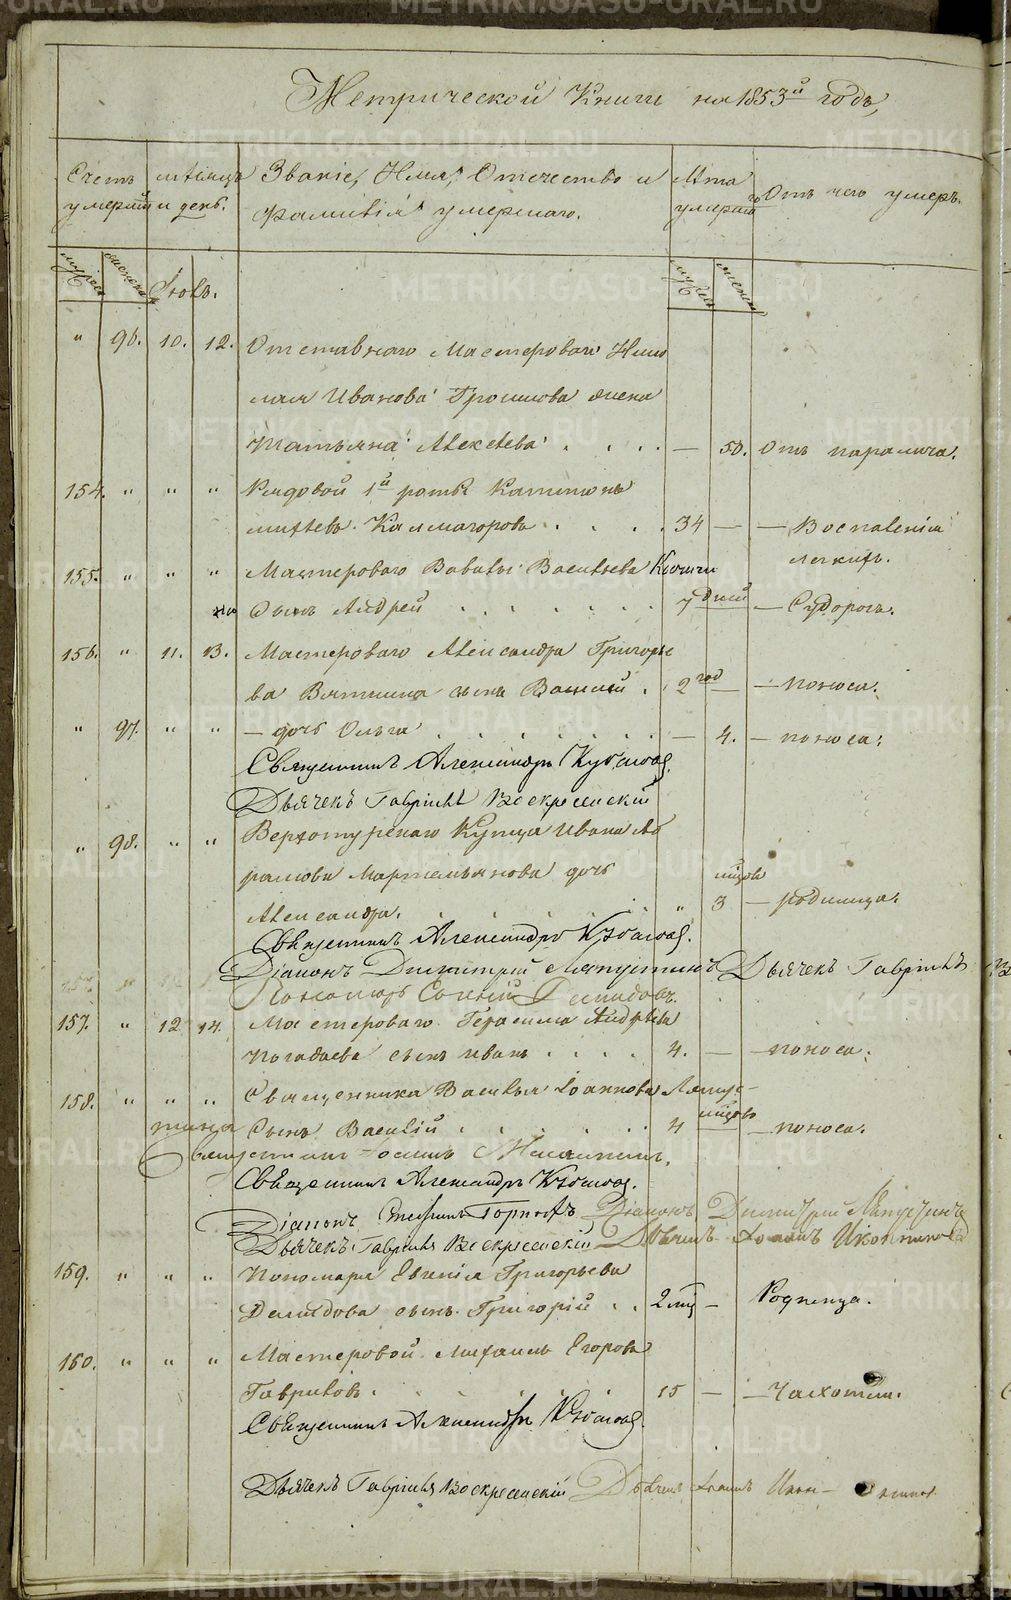 Метрической Книги на 1853й годъ,
Счетъ умершихъ
мѣсяцъ и день.
Званіе, Имя, Отечество и
Фамилія умершаго.
Лѣта
умершаго
Отъ чего умеръ.
мужеск
женска
Іюль.
мужеск
женск
" 96. 10. 12. Отставнаго Мастероваго
Иванова Грошиова жена
Татьяна Алексѣева . . . . — 50. Отъ паралича.
154. " " " Рядовой 1й роты Капитонъ
Калмагорова . . . . 34 — — Воспаленія
легкихъ.
155. " " " Мастероваго Вавилы Васильева
Сынъ Андрей . . . . . . . 7 дней — Судорогъ.
156. " 11. 13. Мастероваго Александра Григорье
ва Вяткина сынъ Василій . 2 год — — поноса.
" 97. " " — дочь Ольга . . . . . . . — 4. — поноса.
Священникъ Александръ
Дьячекъ Гавріилъ Воскресенскій
" 98. " " Верхотурскаго Купца Ивана Аб
рамова Мартемьянова дочь
мѣсяцовъ
Александра. . . . . . . " 3 — родимца.
Священникъ Александръ
Діаконъ Димитрій Ляпустинъ Дьячекъ Гавріилъ
Пономарь Евгеній Демидовъ.
157. " 12 14. Мастероваго Герасима Андрѣева
Погадаева сынъ Иванъ . . . . 4. — — поноса.
158. " " " Священника Василья Іоаннова Ляпус-
тина Сынъ Василій . . . . . 4 мѣсяцовъ — поноса.
Священникъ
Священникъ Александръ
Діаконъ Стефанъ Горныхъ Діаконъ Димитрій Ляпустинъ
Дьячекъ Гавріилъ Воскресенскій Дьячекъ Іоаннъ Иконниковъ
159. " " " Пономаря Евгенія Григорьева
Демидова сынъ Григорій . . 2 мѣ — Родимца.
160. " " " Мастеровой Михаилъ Егоровъ
Гавриловъ . . . . . . 15 — — Чахотки.
Священникъ Александръ
Дьячекъ Гавріилъ Воскресенскій Дьячекъ Іоаннъ